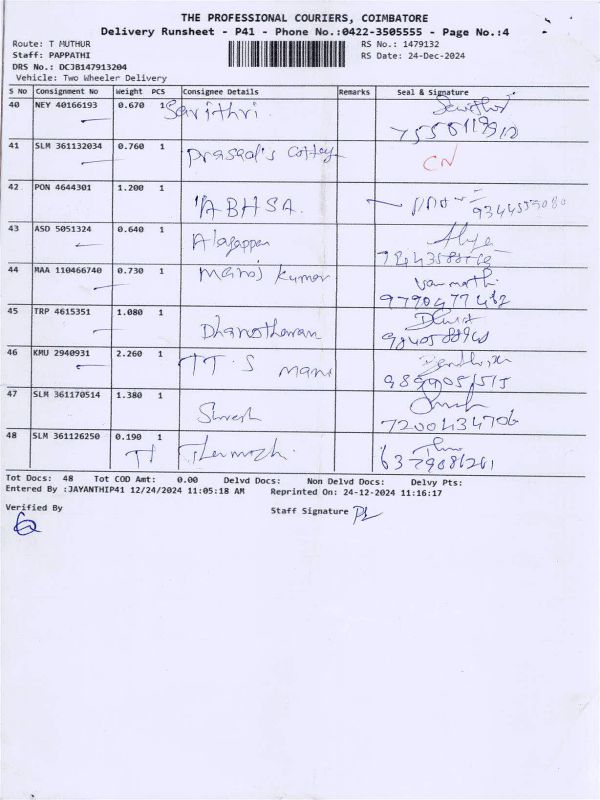 THE PROFESSIONAL COURIERS, COIMBATORE
Delivery Runsheet - P41 - Phone No.:0422-3505555 - Page No.:4
Route: T MUTHUR
RS No.: 1479132
Staff: PAPPATHI
RS Date: 24-Dec-2024
DRS No.: DCJB147913204
Vehicle: Two Wheeler Delivery
S No Consignment No Weight PCS Consignee Details Remarks Seal & Signature
40 NEY 40166193 0.670 1 Savithri.
41 SLM 361132034 0.760 1 Prasad's CN
42 PON 4644301 1.200 1 ABHSA.
43 ASD 5051324 0.640 1 Alagappan
44 MAA 110466740 0.730 1 Manoj Kumar
9790477462
45 TRP 4615351 1.080 1
46 KMU 2940931 2.260 1 TT.S mani
47 SLM 361170514 1.380 1
7200434706
48 SLM 361126250 0.190 1
Tot Docs: 48 Tot COD Amt: 0.00 Delvd Docs: Non Delvd Docs: Delvy Pts:
Entered By :JAYANTHIP41 12/24/2024 11:05:18 AM Reprinted On: 24-12-2024 11:16:17
Verified By
Staff Signature